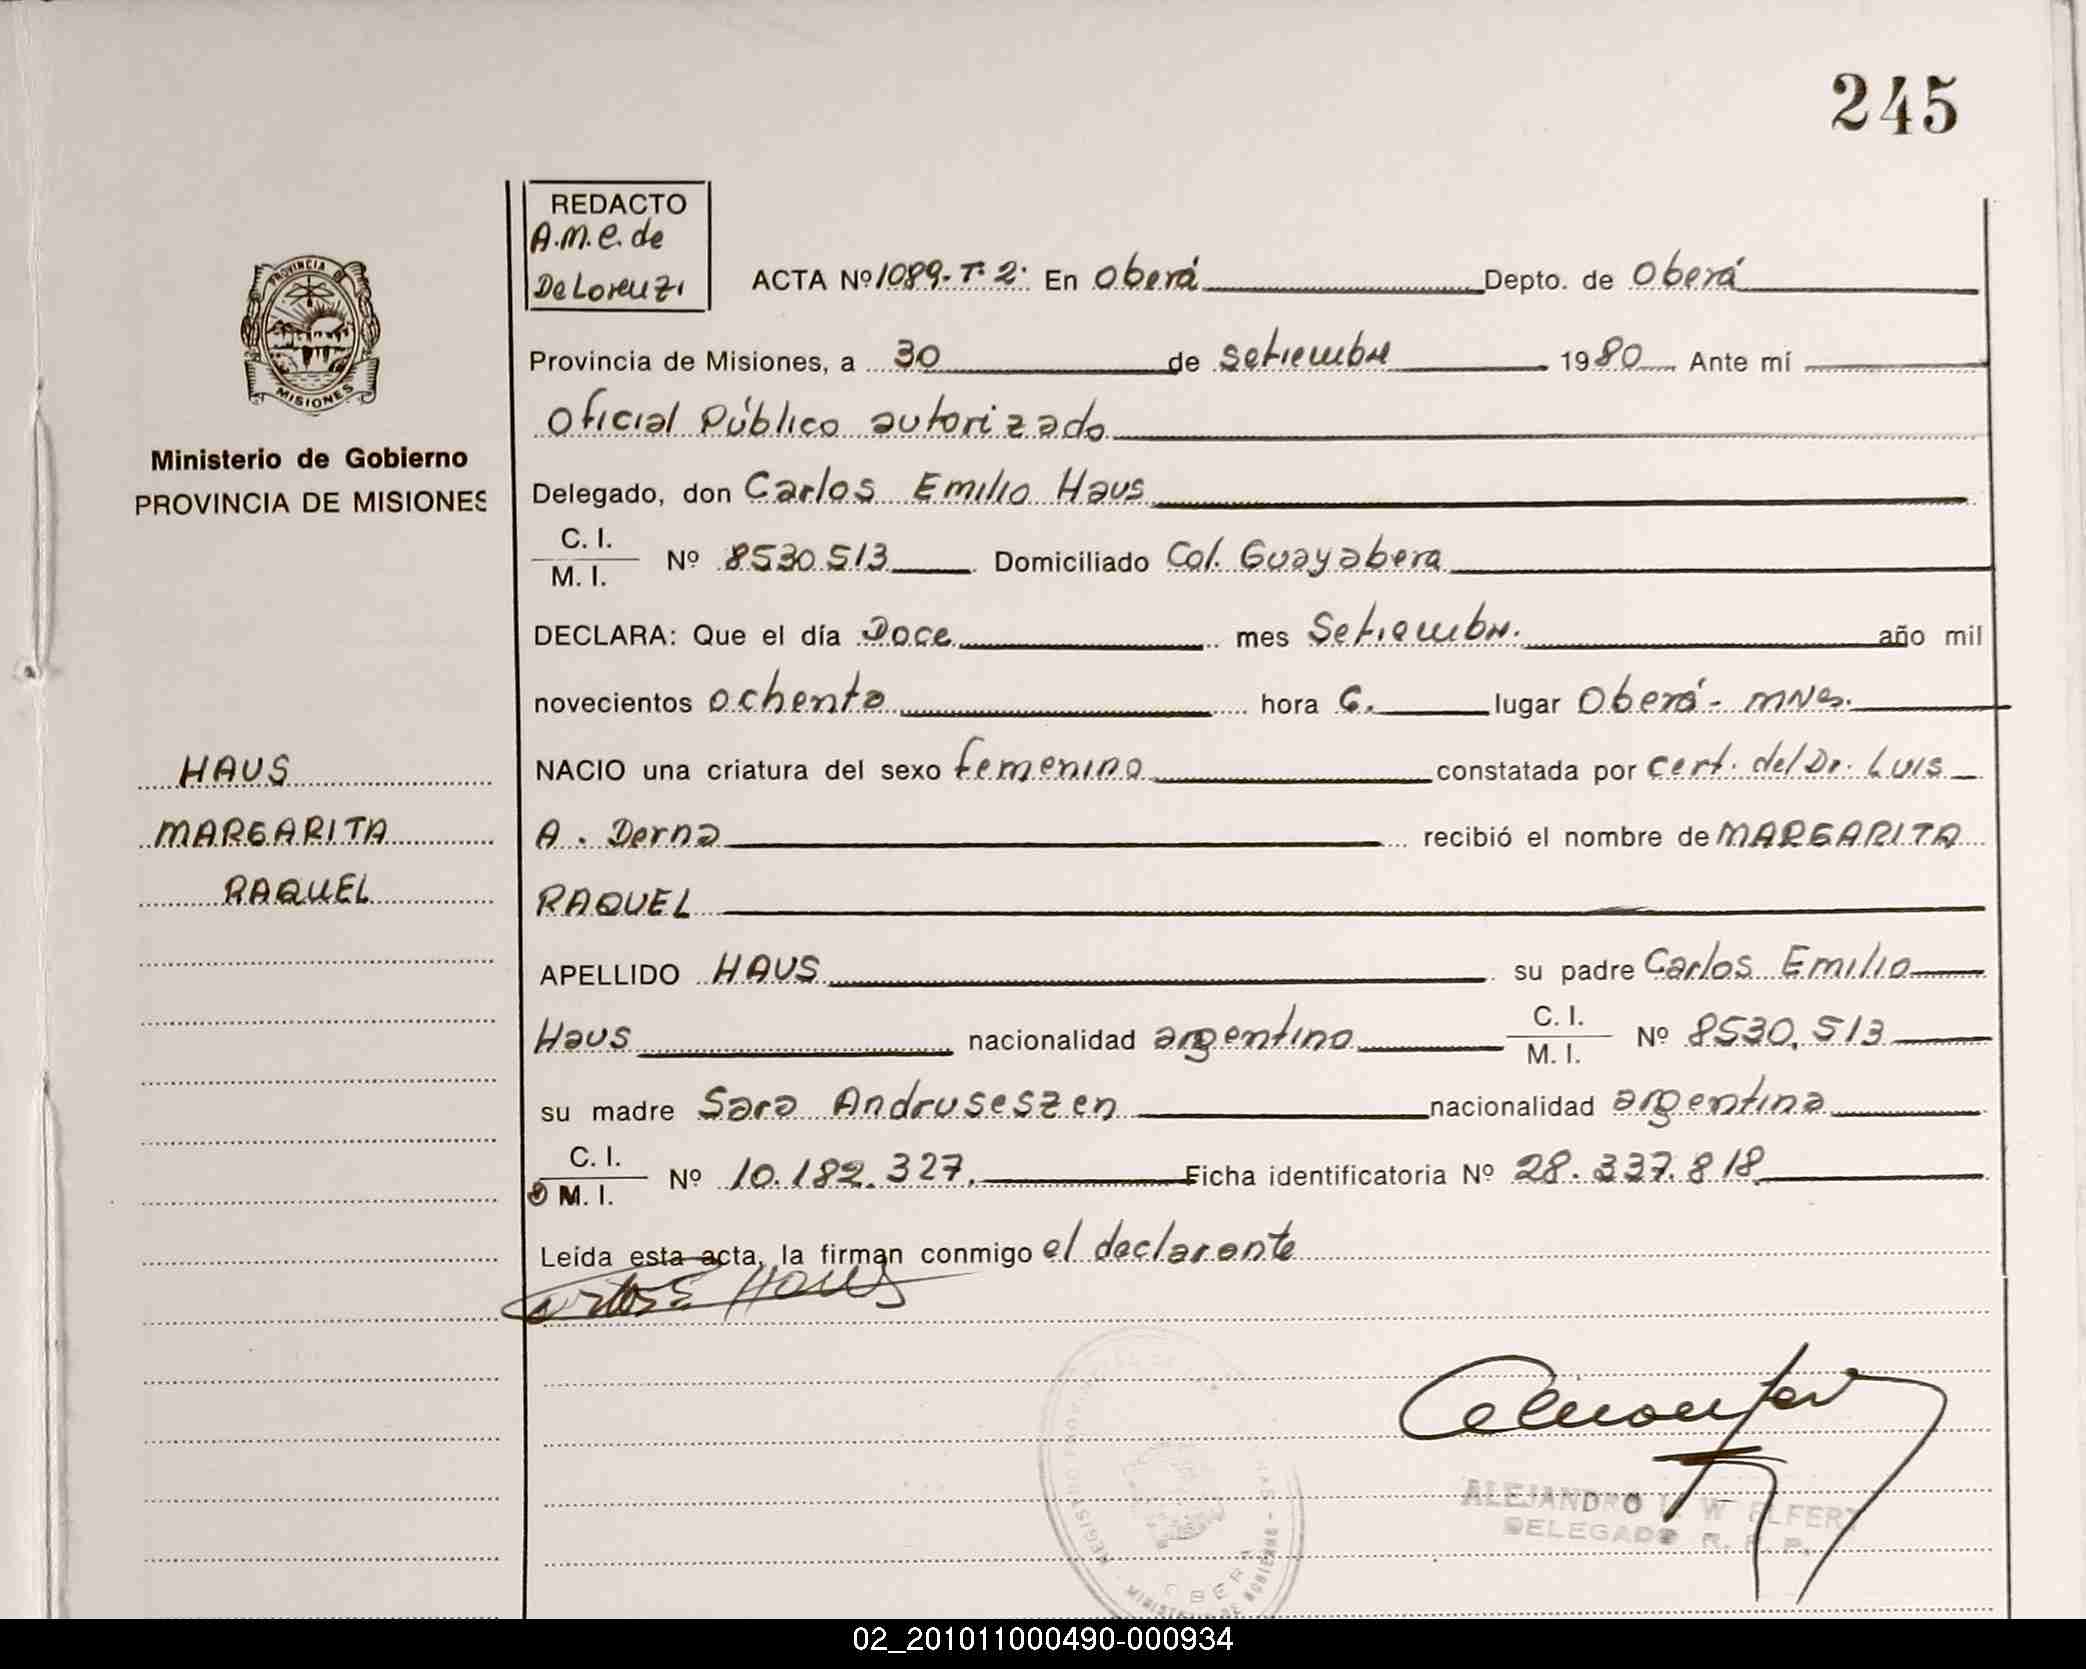 245
REDACTO
A.M.C. de
De Lorenzi
ACTA Nº 1089-T:2: En Oberá Depto. de Oberá
Provincia de Misiones, a 30 de setiembre 1980 Ante mí
Oficial Público autorizado
Delegado, don Carlos Emilio Haus
C. I.
M. I. Nº 8530513 Domiciliado Col. Guayabera
DECLARA: Que el día Doce mes Setiembre. año mil
novecientos ochenta hora 6. lugar Oberá - MNes.
NACIO una criatura del sexo femenino constatada por cert. del Dr. Luis
A. Derna recibió el nombre de MARGARITA
RAQUEL
APELLIDO HAUS su padre Carlos Emilio
Haus nacionalidad argentino C. I.
M. I. Nº 8530.513
su madre Sara Andruseszen nacionalidad argentina
C. I.
M. I. Nº 10.182.327. Ficha identificatoria Nº 28.337.818
Leída esta acta, la firman conmigo el declarante
Carlos E Haus
PROVINCIA DE
MISIONES
Ministerio de Gobierno
PROVINCIA DE MISIONES
HAUS
MARGARITA
RAQUEL
ALEJANDRO W ELFERT
DELEGADO R. P.
02_201011000490-000934